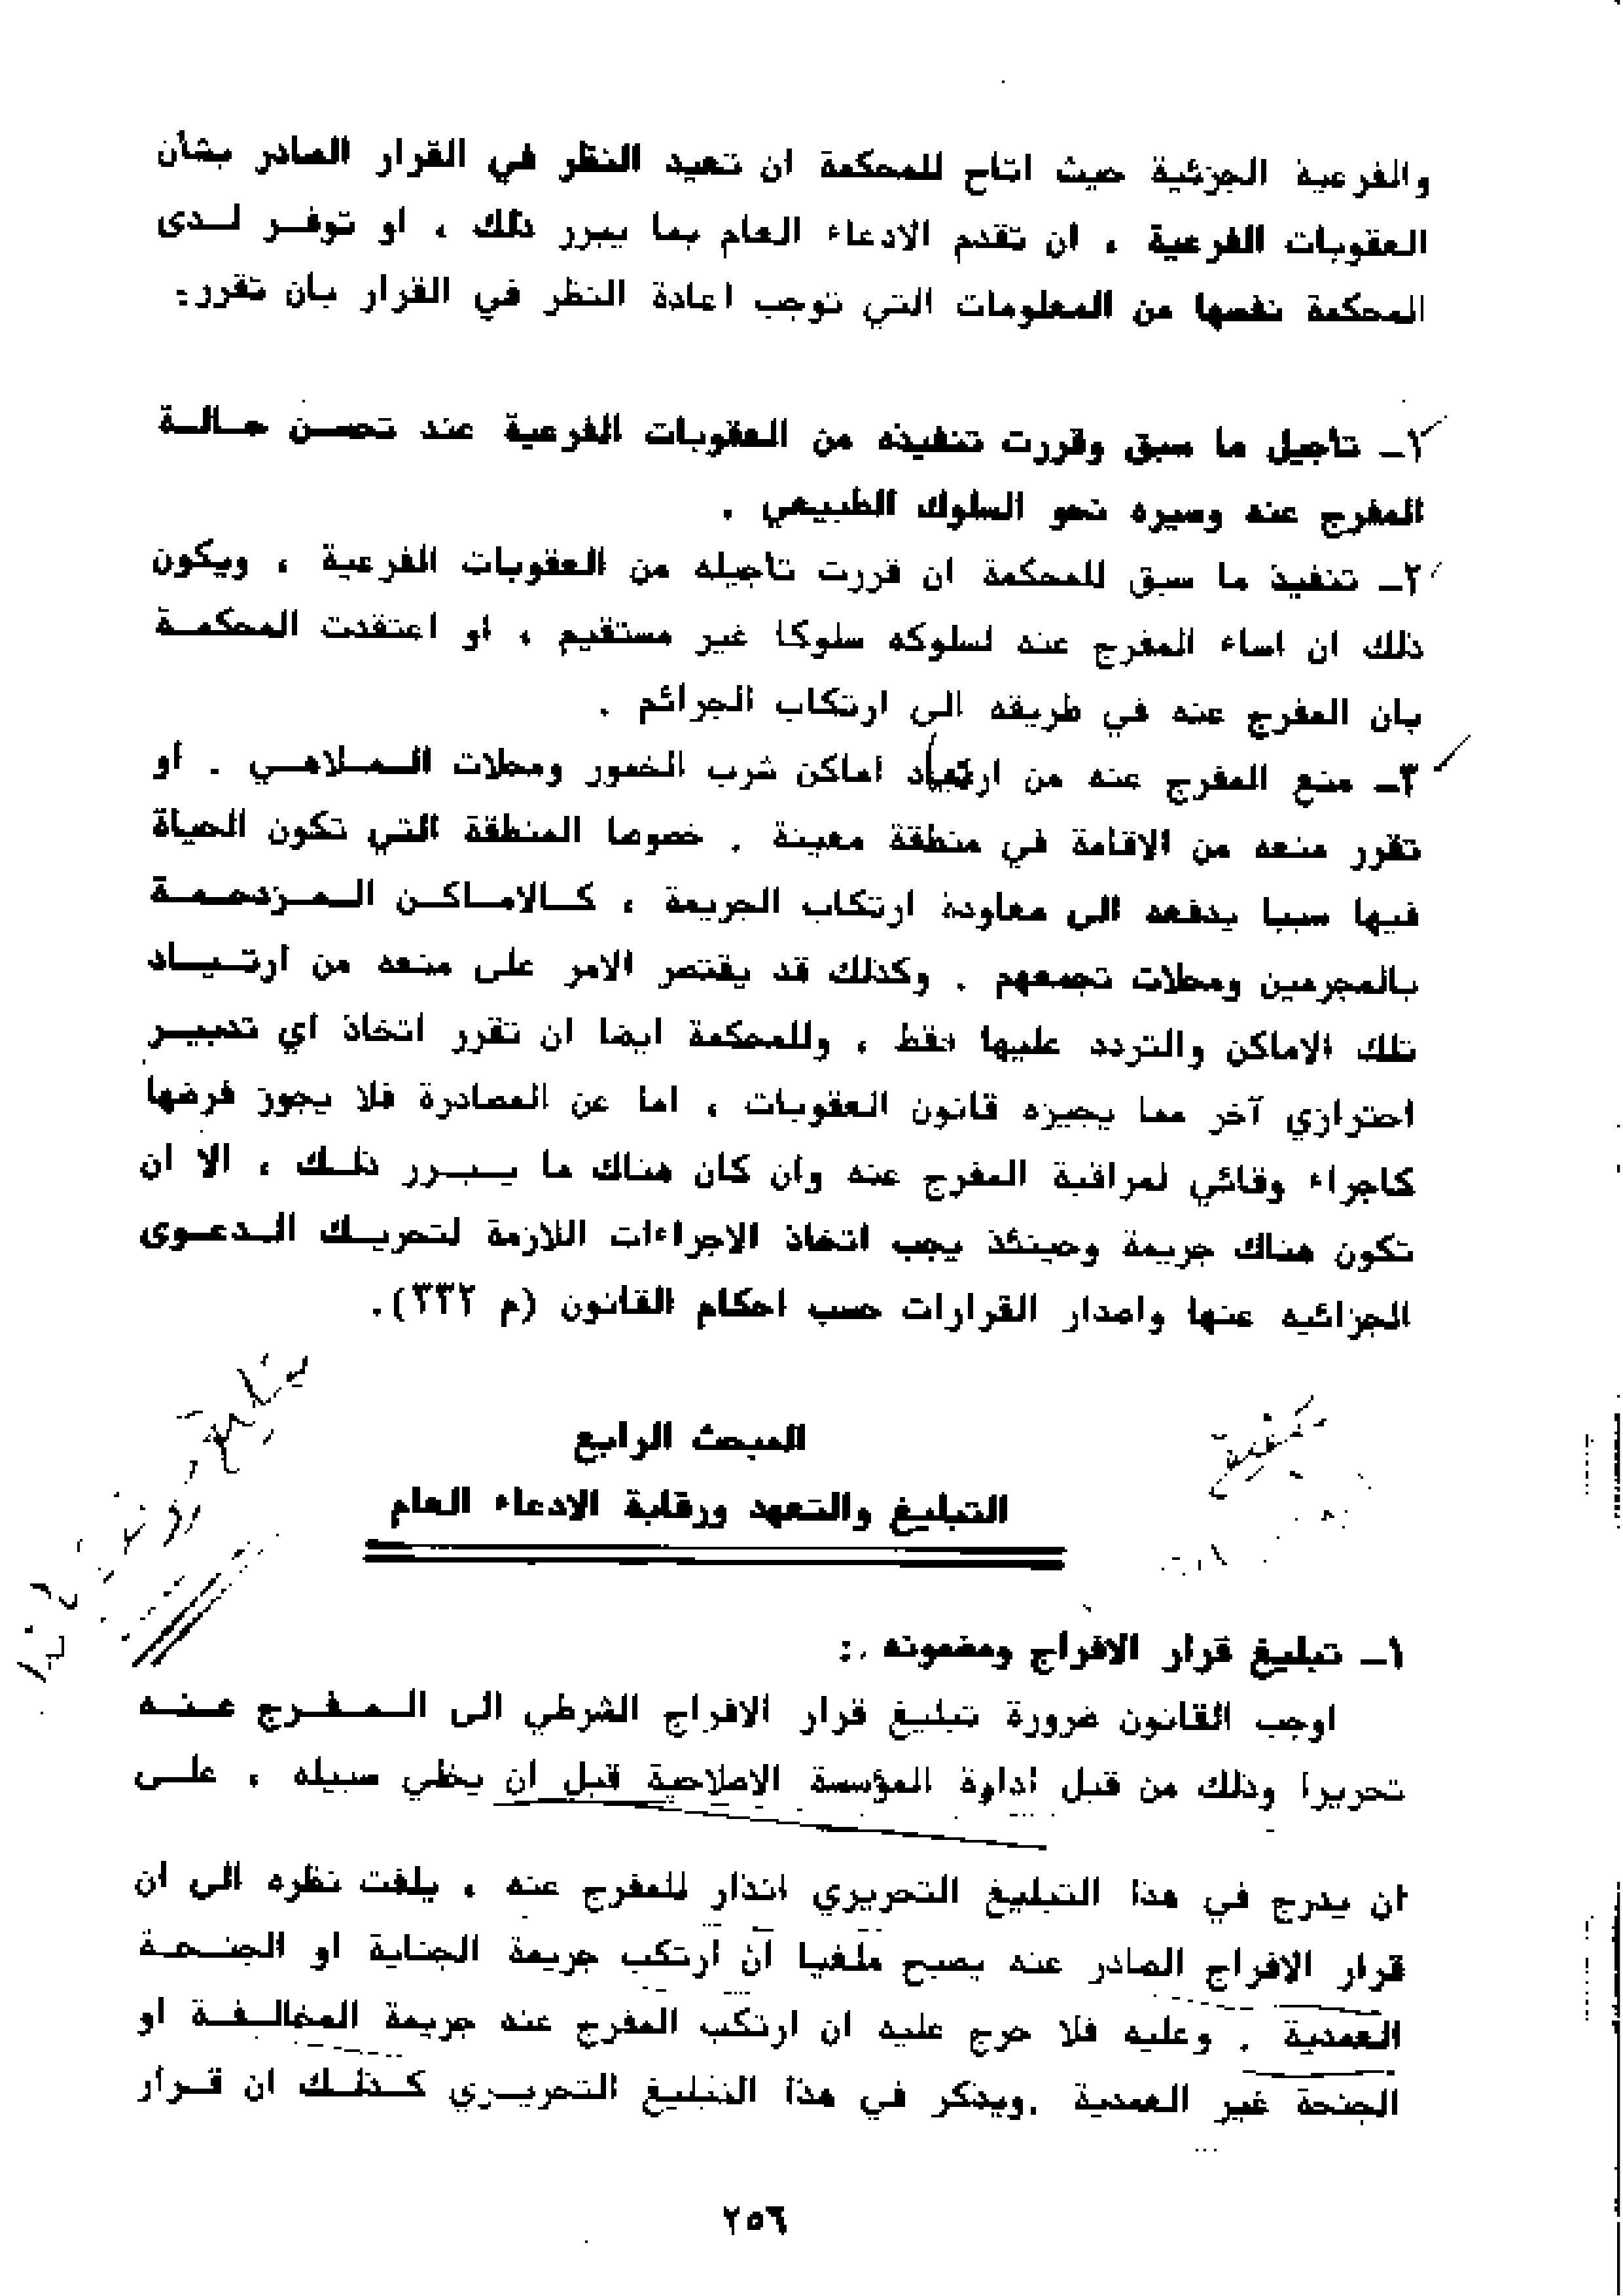 والفرعية الجزئية حيث اتاح للمحكمة ان تعيد النظر في القرار الصادر بشأن
العقوبات الفرعية ، ان تقدم الادعاء العام بما يبرر ذلك ، او توفـر لـدى
المحكمة نفسها من المعلومات التي توجب اعادة النظر في القرار بان تقرر:
١ـ تأجيل ما سبق وقررت تنفيذه من العقوبات الفرعية عند تحسـن حـالـة
المفرج عنه وسيره نحو السلوك الطبيعي .
٢ـ تنفيذ ما سبق للمحكمة ان قررت تاجيله من العقوبات الفرعية ، ويكون
ذلك ان اساء المفرج عنه لسلوكه سلوكا غير مستقيم ، او اعتقدت المحكمـة
بان المفرج عنه في طريقه الى ارتكاب الجرائم .
٣ـ منع المفرج عنه من ارتياد اماكن شرب الخمور ومحلات الـمـلاهـي . او
تقرر منعه من الاقامة في منطقة معينة . خصوصا المنطقة التي تكون الحياة
فيها سببا يدفعه الى معاودة ارتكاب الجريمة ، كـالامـاكـن الـمـزدحمـة
بالمجرمين ومحلات تجمعهم . وكذلك قد يقتصر الامر على منعه من ارتـيـاد
تلك الاماكن والتردد عليها فقط ، وللمحكمة ايضا ان تقرر اتخاذ اي تدبيـر
احترازي آخر مما يجيزه قانون العقوبات ، اما عن المصادرة فلا يجوز فرضها
كاجراء وقائي لمراقبة المفرج عنه وان كان هناك ما يـبـرر ذلـك ، الا ان
تكون هناك جريمة وحينئذ يجب اتخاذ الاجراءات اللازمة لتحريـك الـدعـوى
الجزائيه عنها واصدار القرارات حسب احكام القانون (م ٣٣٢).
المبحث الرابع
التبليغ والتعهد ورقابة الادعاء العام
١ـ تبليغ قرار الافراج ومضمونه .:
اوجب القانون ضرورة تبليغ قرار الافراج الشرطي الى الـمـفـرج عـنـه
تحريرا وذلك من قبل ادارة المؤسسة الاصلاحية قبل ان يخلي سبيله ، علـى
ان يدرج في هذا التبليغ التحريري انذار للمفرج عنه ، يلفت نظره الى ان
قرار الافراج الصادر عنه يصبح ملغيا ان ارتكب جريمة الجناية او الجنـحـة
العمدية . وعليه فلا حرج عليه ان ارتكب المفرج عنه جريمة المخالـفـة او
الجنحة غير العمدية .ويذكر في هذا التبليغ التحريـري كـذلـك ان قـرار
٢٥٦